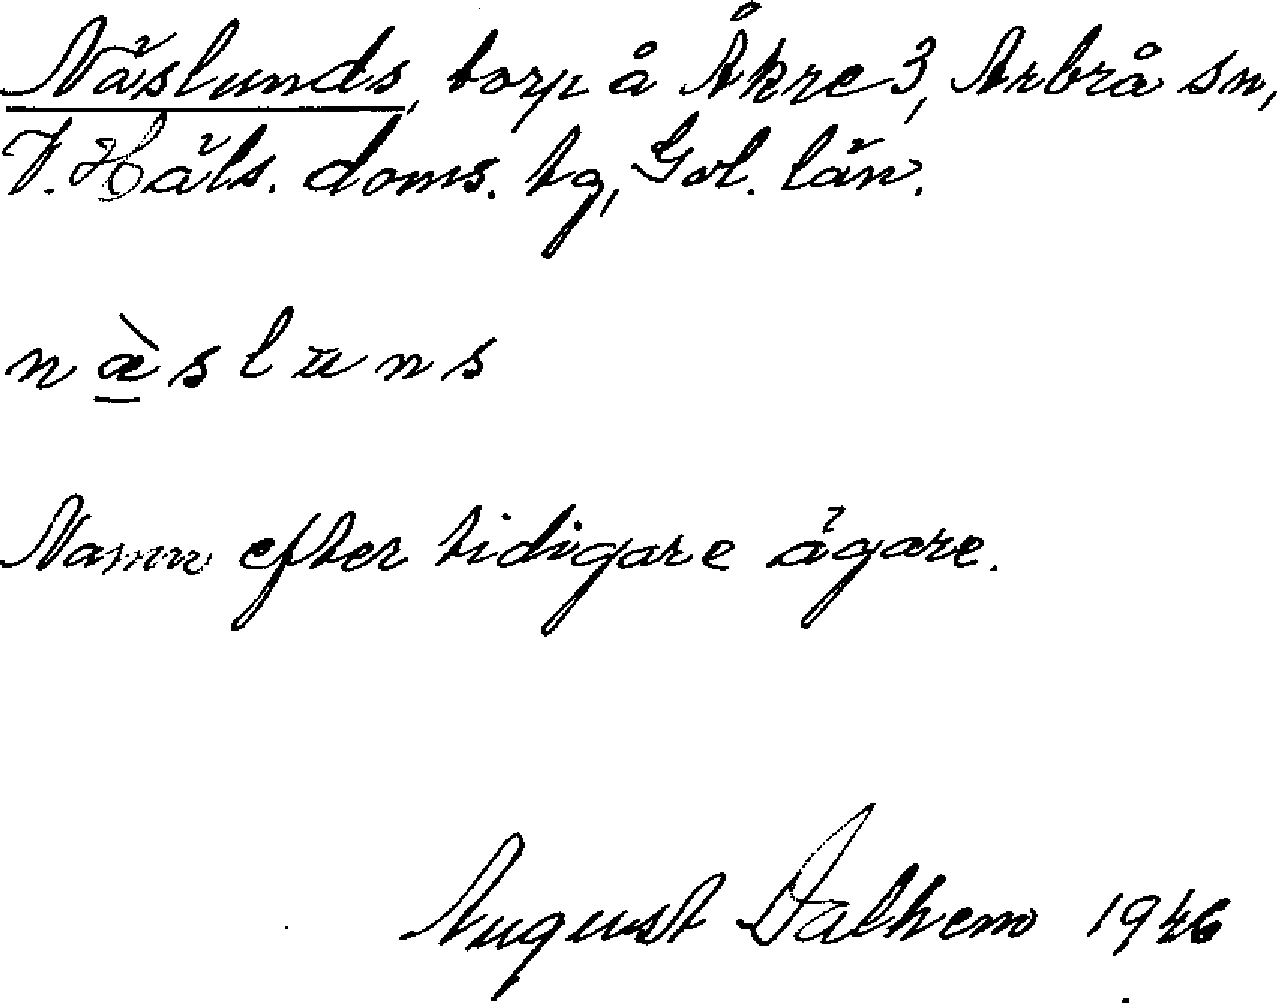 Näslunds, torp å Åkre 3, Arbrå sn,
V. Häls. doms. tg, Gvl. län.
n æ̀ s l u n s
Namn efter tidigare ägare.
August Dalhem 1946